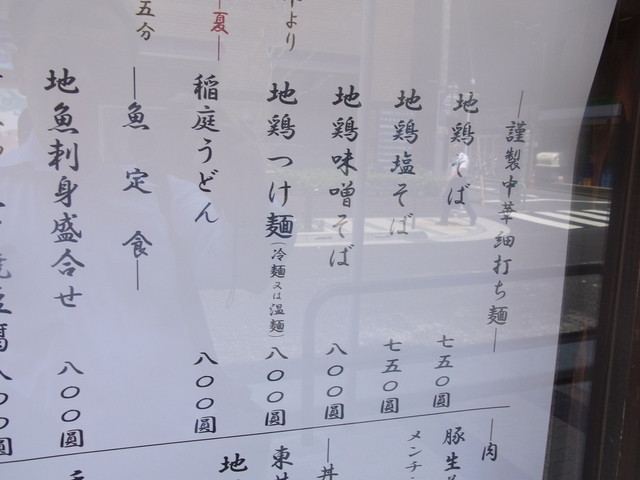 ―謹製中華細打ち麺―
地鶏そば 七五〇圓
地鶏塩そば 七五〇圓
地鶏味噌そば 八〇〇圓
地鶏つけ麺(冷麺又は温麺) 八〇〇圓
より
―夏―
稲庭うどん 八〇〇圓
五分
―魚定食―
地魚刺身盛合せ 八〇〇圓
豆腐 八〇〇圓
―肉
豚生
メンチ
―丼
東
地